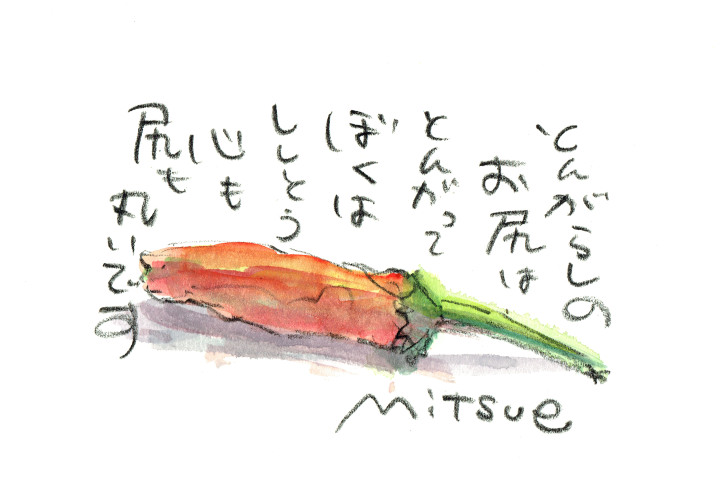 とんがらしの
お尻は
とんがって
ぼくは
ししとう
心も
尻も
丸いです
Mitsue